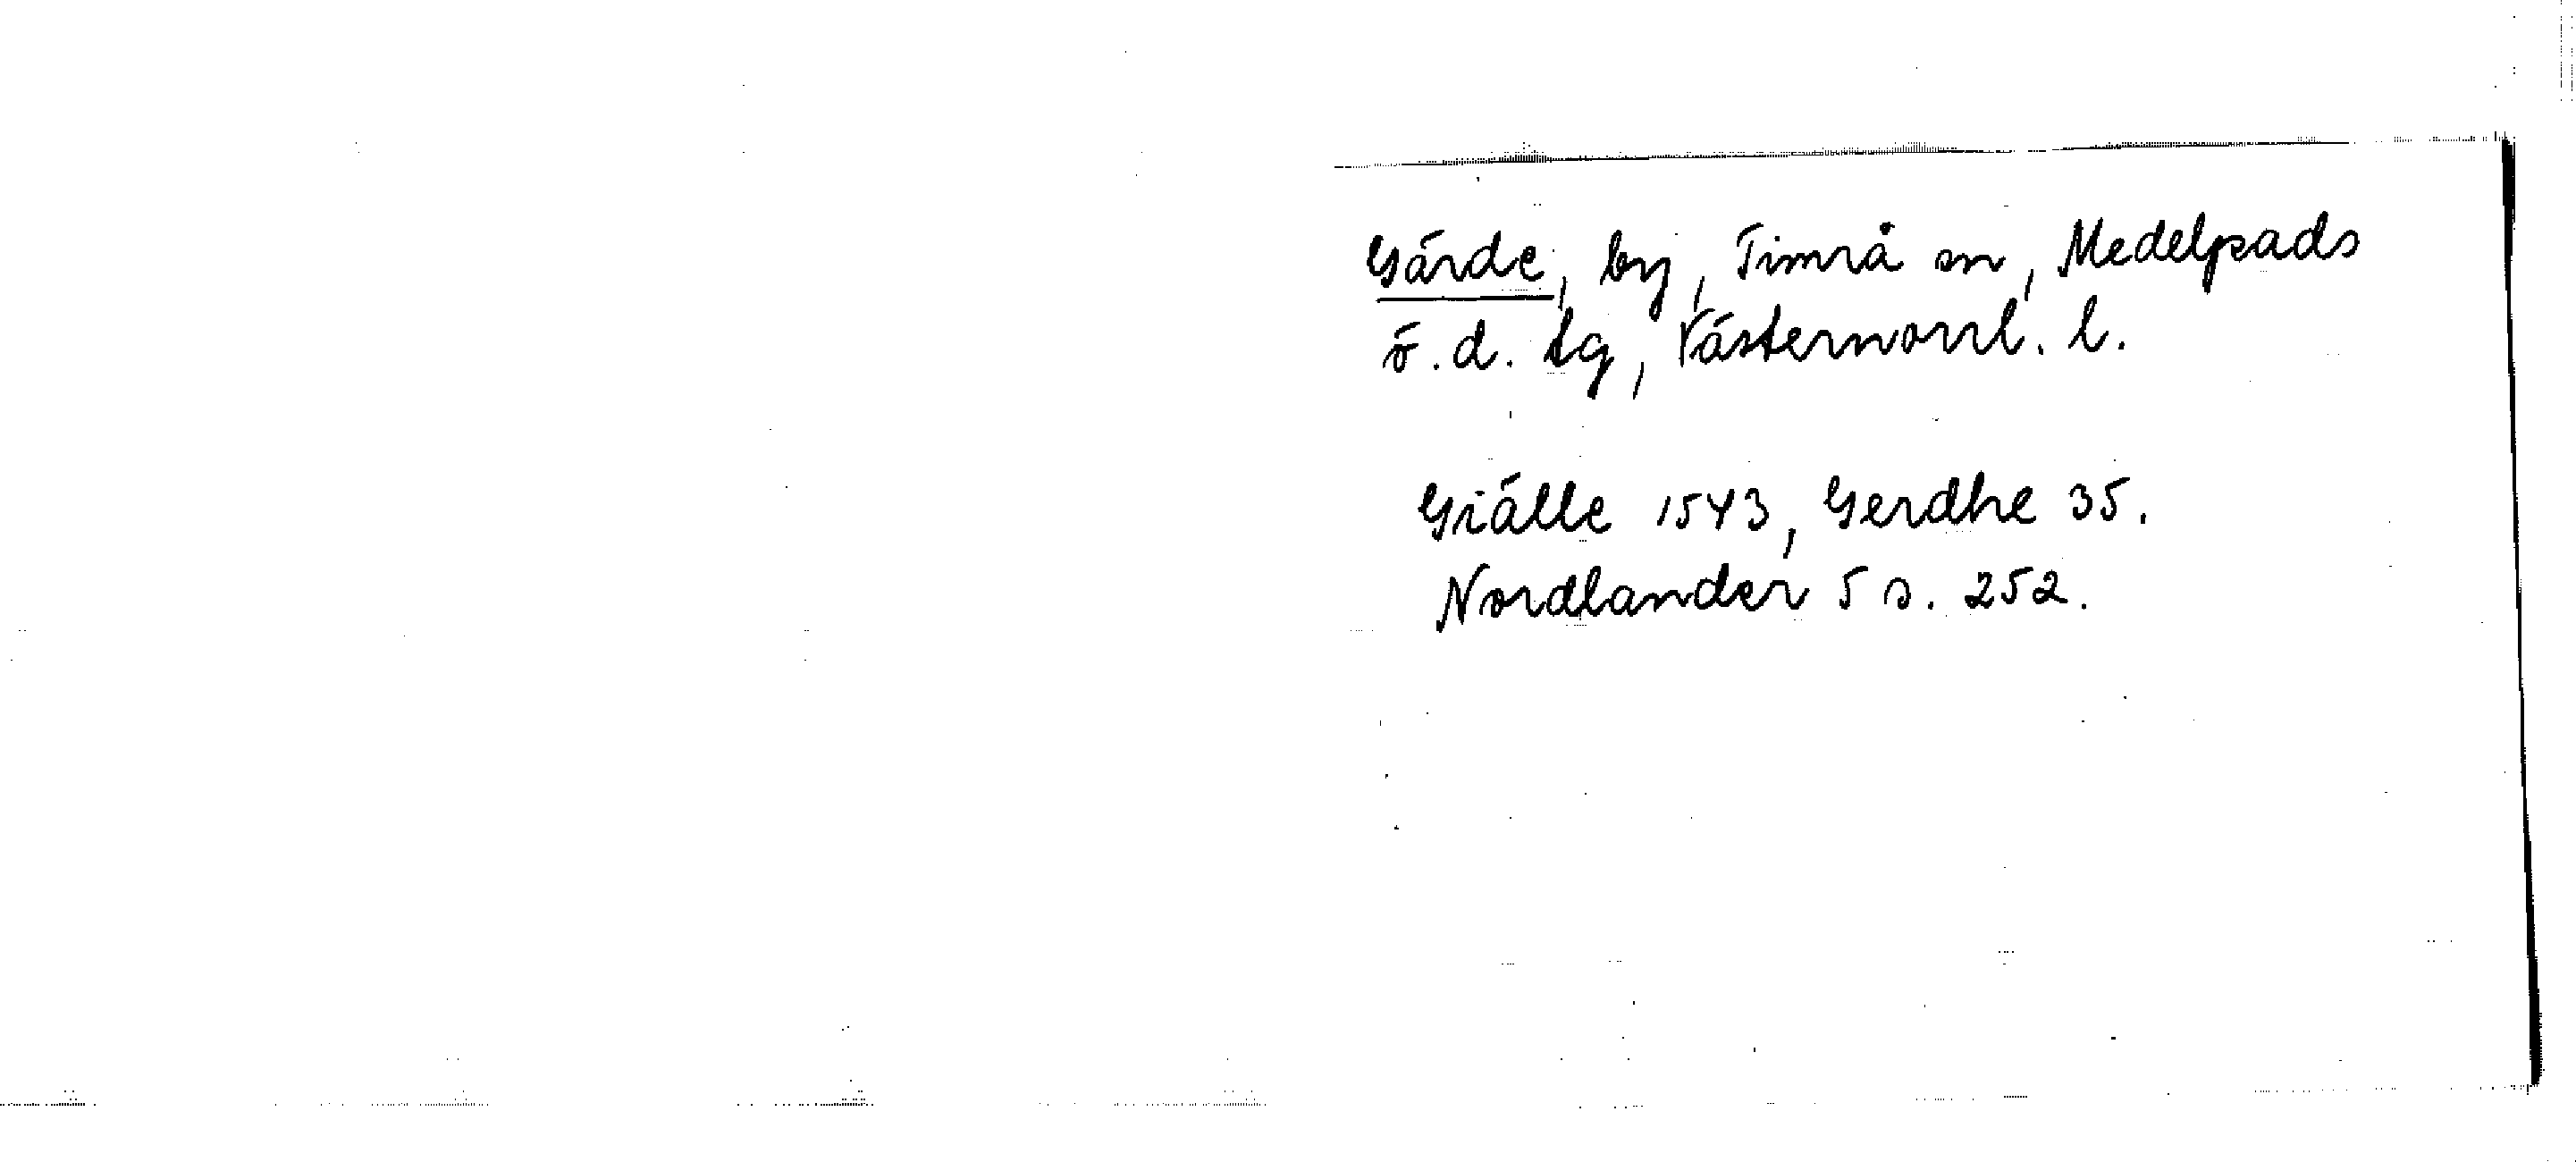 Gärde, by, Timrå sn, Medelpads
ö. d. tg, Västernorrl. l.
Giälle 1543, Gerdhe 35.
Nordlander 5 s. 252.